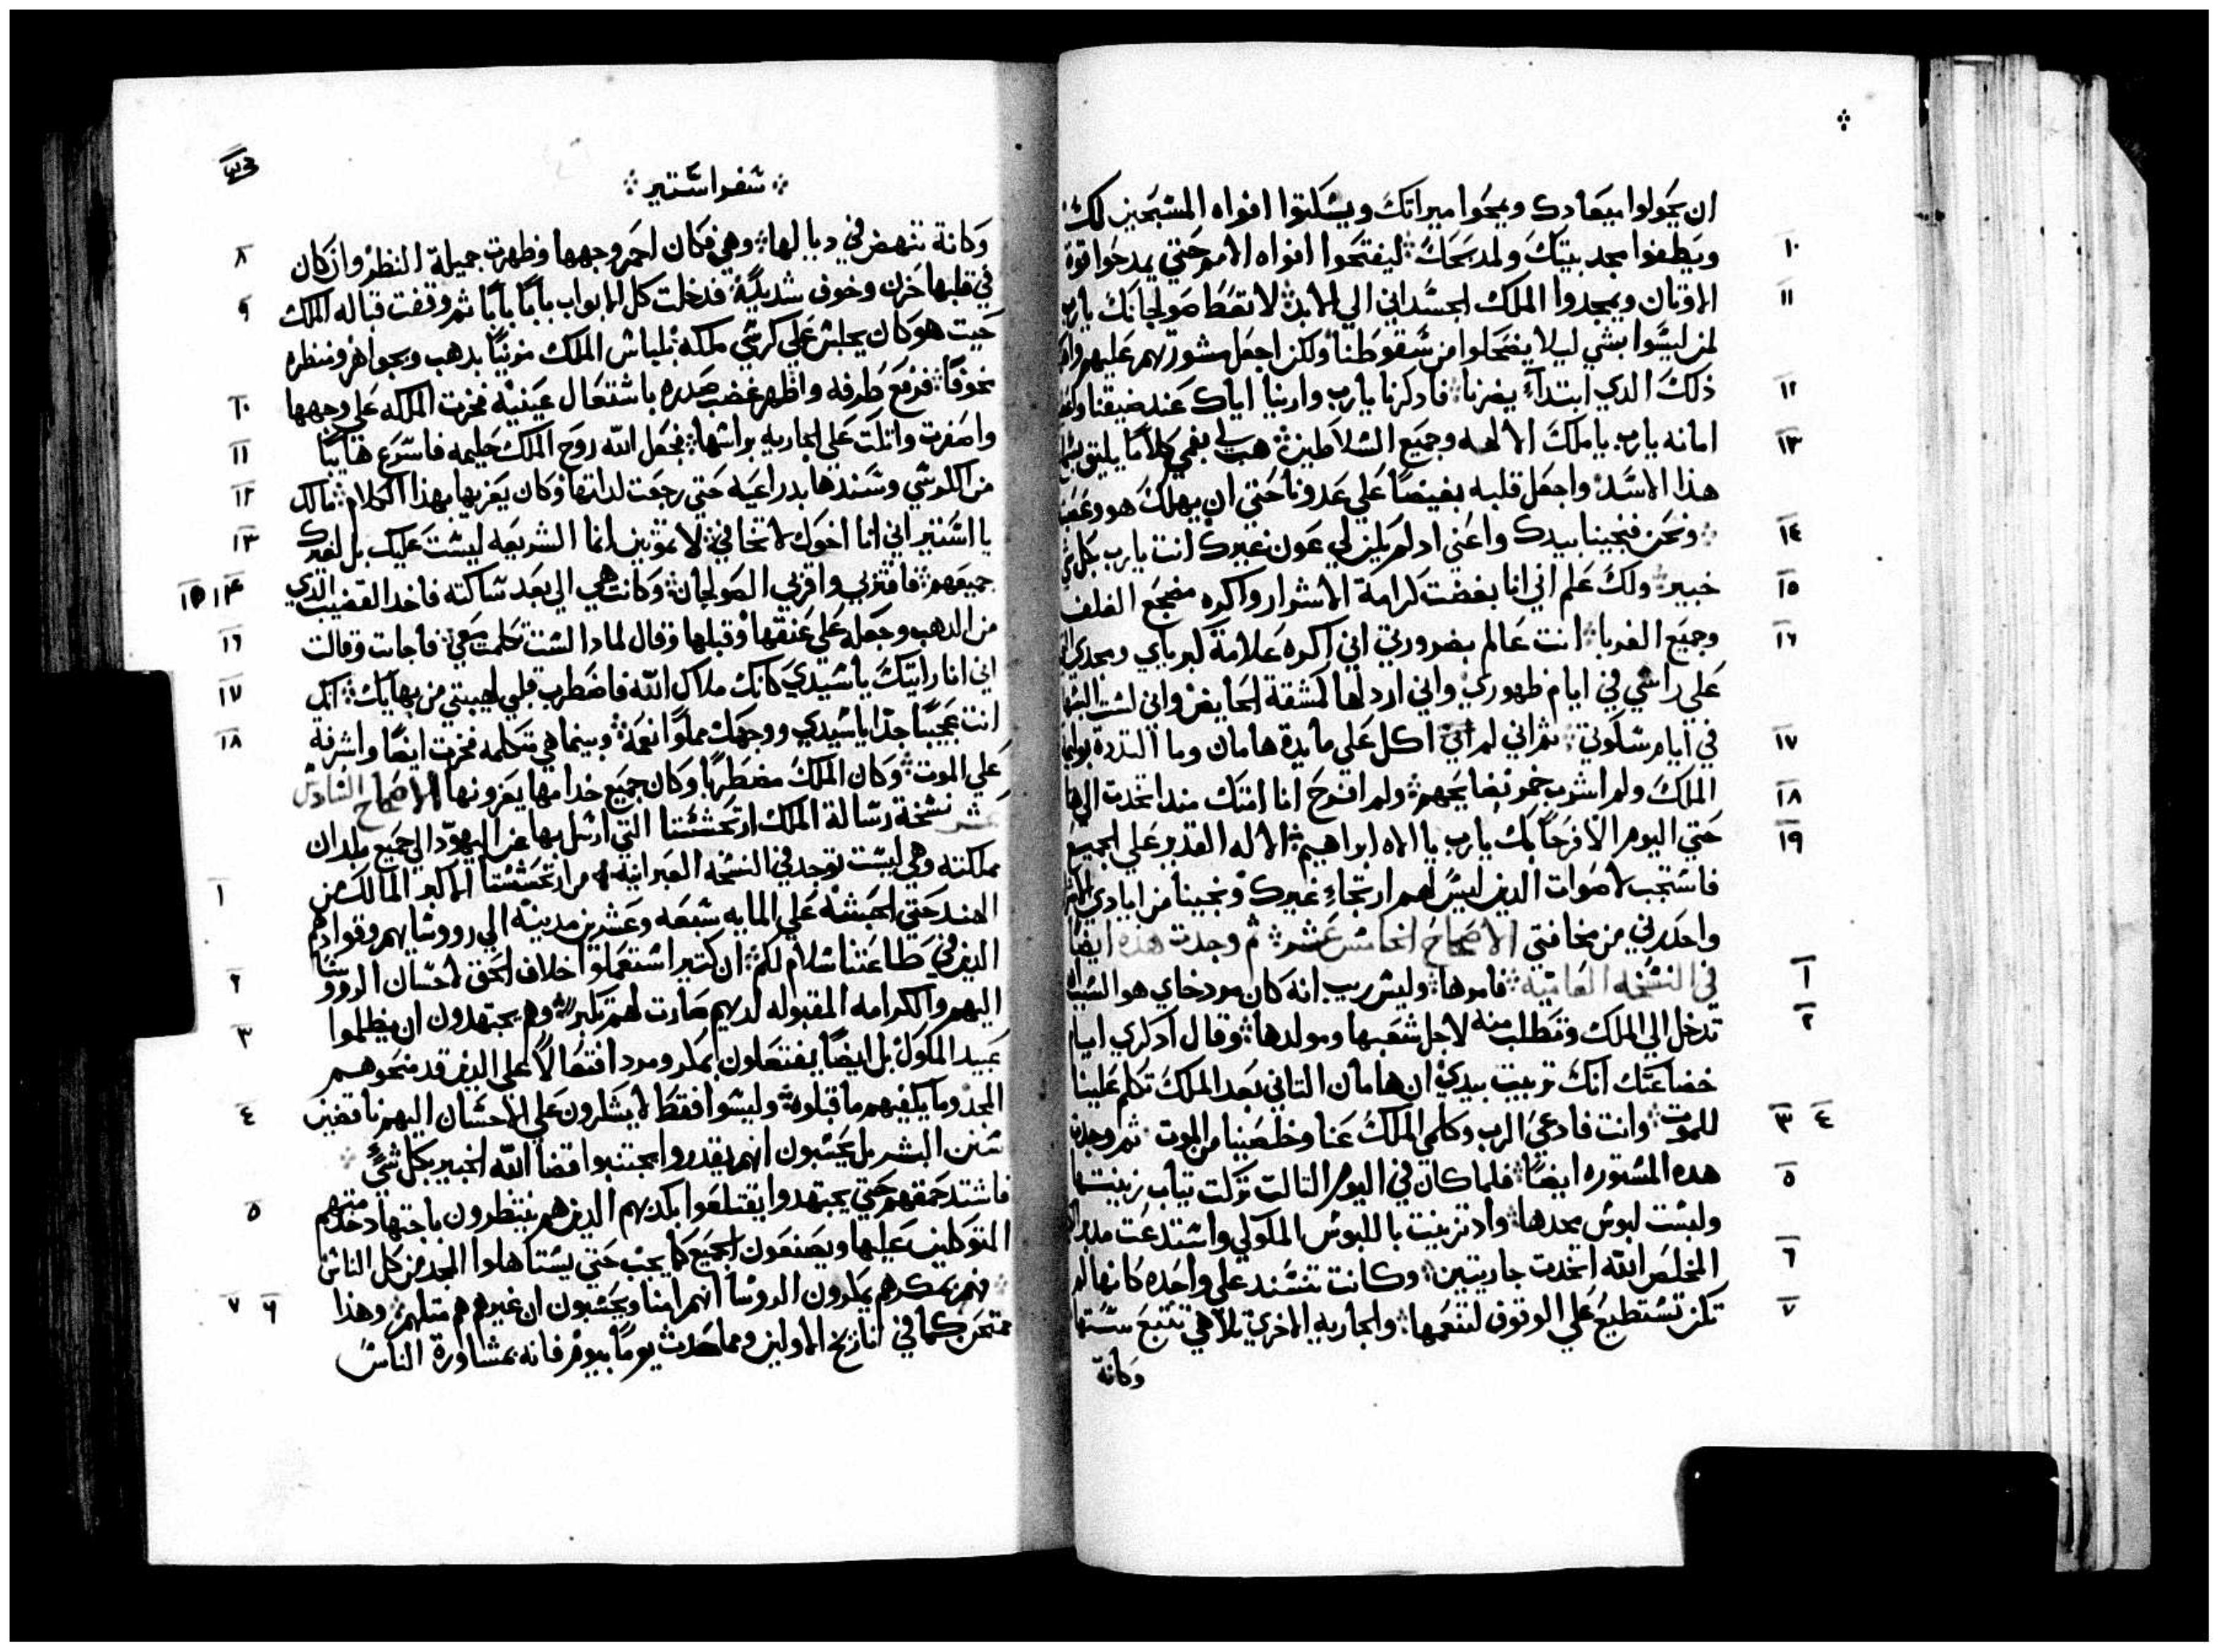 ان يحولوا ميعادك ويمحوا ميراتك ويسكتوا افواه المسبحين لك
١٠ ويطفوا مجد بيتك ومدبحك ليفتحوا افواه الامم حتي يمدحوا قوة
١١ الاوتان ويمجدوا الملك الجسداني الي الابد لا تعط صولجانك يارب
لمن ليسوا بشي ليلا يضحكوا من سقوطنا ولكن اجعل مشورتهم عليهم
١٢ ذلك الدي ابتداء يضرنا فادكرنا يارب وارنيا اياك عند ضيقنا
١٣ امانه يارب يا ملك الالهه وجميع السلاطين هب لي بفمي كلاما يليق
هذا الاسد واجعل قلبه بغيضا علي عدونا حتي ان يهلك هو
١٤ ونحن فنجينا بيدك واعني اد لم يكن لي عون غيرك انت يارب بكل
١٥ خبير ولك علم اني انا بغضت كرامة الاشرار واكره مضجع الغلف
١٦ وجميع الغربا انت عالم بضرورتي اني اكره علامة كبرياي ومجدي
علي راسي في ايام ظهوري واني اردلها كمشقة الحايض واني لست
١٧ في ايام سكوتي ثم اني لم اكل علي مايدة هامان وما التددة
١٨ الملك ولم اشرب خمر نضايحهم ولم افرح انا امتك مند اتخدت الي
١٩ حتي اليوم الا فرحا بك يارب يا الاه ابراهيم الاله القدير علي الجميع
فاستجب لاصوات الدين ليس لهم ارتجاء غيرك ونجينا من ايادي
واحدرني من مخافتي الاصحاح الخامس عشر ثم وجدت هده ايضا
١ في النسخه العاميه فامرها وليس ريب انه كان مردخاي هو
٢ تدخل الي الملك وتطلب منه لاجل شعبها ومولدها وقال ادكري ايام
خضاعتك انك تربيت بيدي ان هامان التاني بعد الملك تكلم علينا
٣ ٤ للموت وانت فادعي الرب وكلمي الملك عنا وخلصينا من الموت ثم وجدت
٥ هده المستوره ايضا فلما كان في اليوم التالت نزلت تياب زينتها
ولبست لبوس مجدها واد تزينت باللبوس الملوكي واستدعت مدبر
٦ المخلص الله اتخدت جاريتين وكانت تتسند علي واحده كانها لم
٧ تكن تستطيع علي الوقوف لتنعمها والجاريه الاخري تلاهي تتبع ستتها
وكانة
سفر استير
وكانة تنهض في ديالها وهي فكان احمر وجهها وظهرت جميلة النظر وان كان ٨
في قلبها حزن وخوف شديد فدخلت كل الابواب بابا بابا ثم وقفت قباله الملك ٩
حيت هو كان يجلس علي كرسي ملكه بلباس الملك مزينا بدهب وبجواهر ومنظره
مخوفا فرفع طرفه واظهر غضب صدره باشتعال عينيه فخرت الملكه علي وجهها ١٠
واصفرت واتكت علي الجاريه براسها فجعل الله روح الملك حليمه فاسرع هايبا ١١
من الكرسي وسندها بدراعيه حتي رجعت لداتها وكان يعزيها بهذا الكلام مالك ١٢
يا استير اني انا اخوك لا تخافي لا تموتين انما الشريعه ليست عليك بل لغيرك ١٣
جميعهم فاقتربي واقربي الصولجان وكانت هي الي بعد ساكته فاخد القضيب الذي ١٤ ١٥
من الدهب وجعله علي عنقها وقبلها وقال لمادا لست تكلمت معي فاجابت وقالت ١٦
اني انا رايتك يا سيدي كانك ملاك الله فاضطرب قلبي لهيبتي من بهايك انك ١٧
انت عجيبا جدا يا سيدي ووجهك مملوا نعمة وبينما هي تتكلمه فخرت ايضا واشرفة ١٨
علي الموت وكان الملك مضطربا وكان جميع خدامها يعزونها الاصحاح السادس
عشر نسخة رسالة الملك ارتحشستا التي ارسل بها عن اليهود الي جميع بلدان
مملكته وهي ليست توجد في النسخه العبرانيه من ارتحشستا الاكبر المالك من ١
الهند حتي الحبشه علي المايه سبعه وعشرين مدينه الي رووسايهم وقوادهم
الدين في طاعتنا سلام لكم ان كتير استعملوا خلاف الحق لاحسان الرووسا ٢
اليهم والكرامه المقبوله لديهم صارت لهم تكبر وهم يجتهدون ان يظلموا
عبيد الملوك بل ايضا يفتعلون بمكر ومرد افتعالا علي الدين قد منحوهم ٣
المجد وما يكفيهم ما قبلوه وليسوا فقط لا يشكرون علي الاحسان اليهم ناقضين ٤
سنن البشر بل يحسبون انهم يقدروا يجتنبوا قضا الله الخبير بكل شي
فاشتد حمقهم حتي يجتهدوا يقتلعوا بكدبهم الدين هم ينتظرون باجتهاد خدمتهم ٥
المتوكلين عليها ويصنعون الجميع كما يجب حتي يستاهلوا المجد من كل الناس
فهم بمكرهم يمكرون الروسا انهم امنا ويحسبون ان غيرهم هم متلهم وهذا ٦ ٧
ممتحن كما في اتاريخ الاولين ومما حدث يوما بيوم فانه بمشاورة الناس